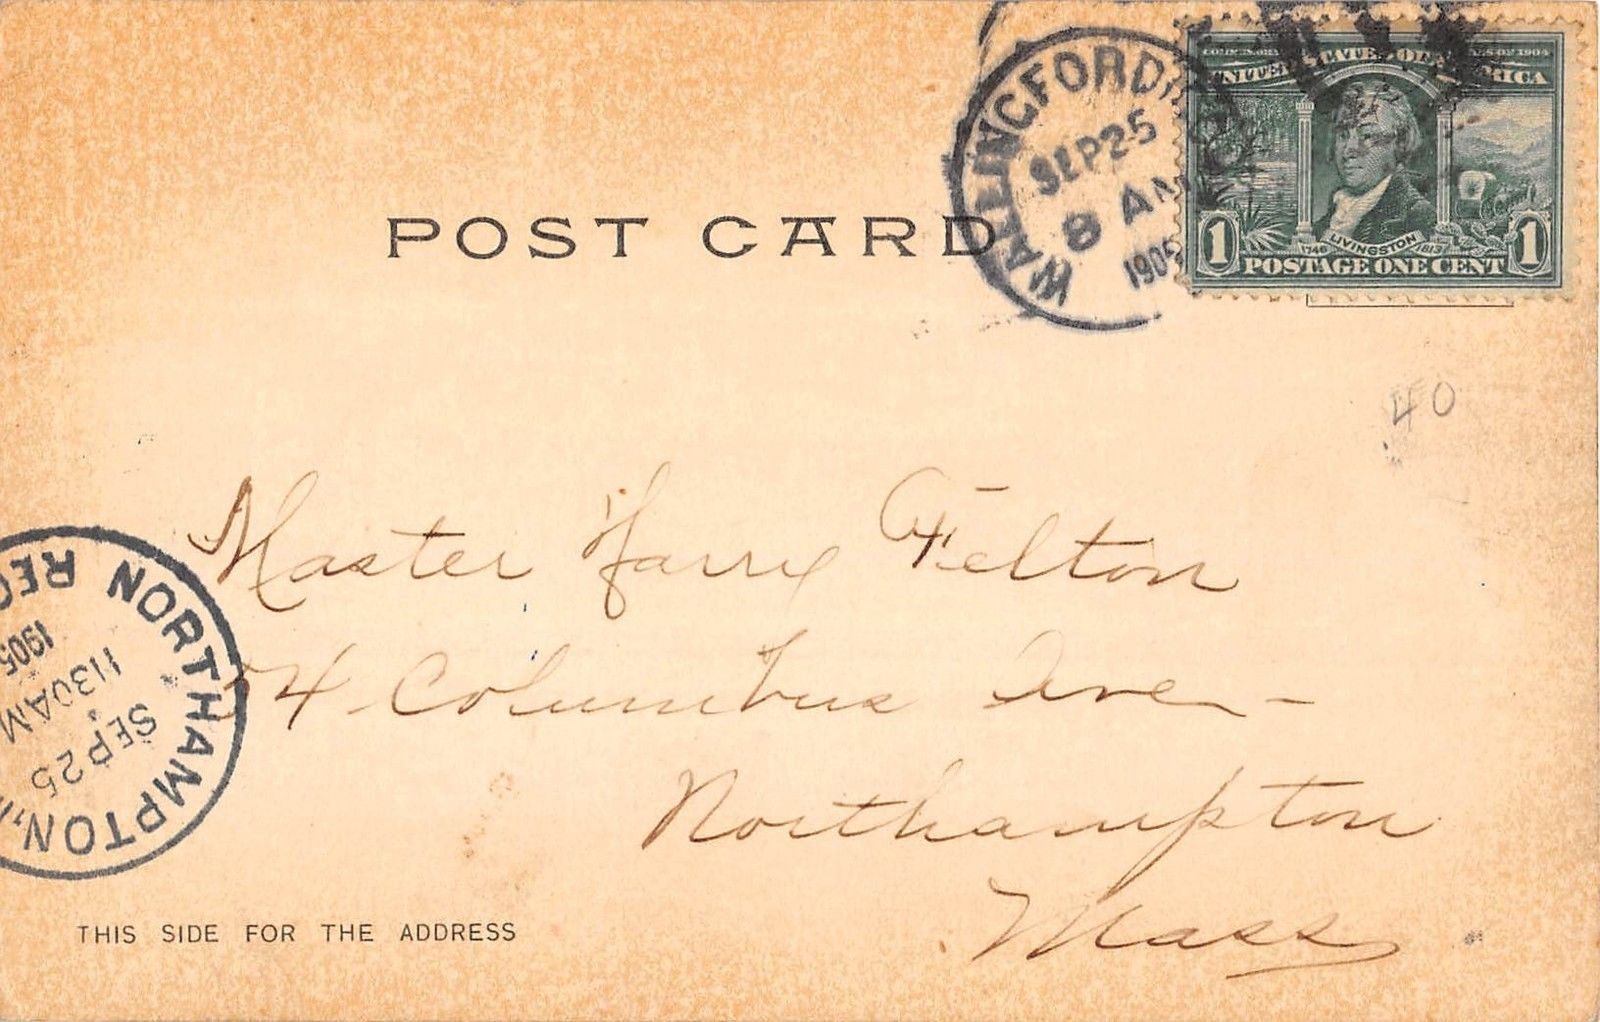 UNITED STATES OF AMERICA
WALLINGFORD
SEP 25
8 AM
1905
1 1
1746 LIVINGSTON 1813
POSTAGE ONE CENT
POST CARD
40
Master Harry Felton
74 Columbus Ave-
Northampton
Mass
NORTHAMPTON,
REC
1905
1130 AM
SEP 25
THIS SIDE FOR THE ADDRESS